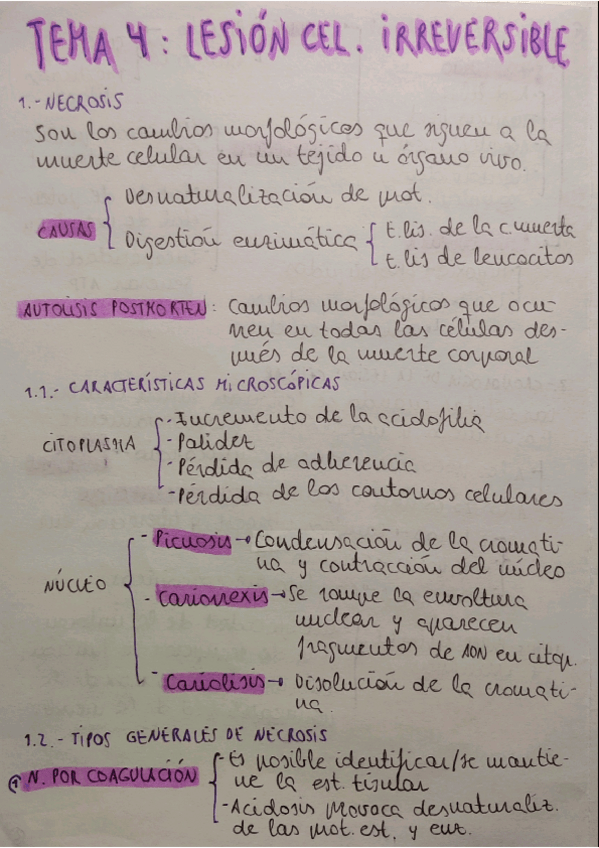 TEMA 4: LESIÓN CEL. IRREVERSIBLE
1.- NECROSIS
Son los cambios morfológicos que siguen a la
muerte celular en un tejido u órgano vivo.
CAUSAS
Desnaturalización de prot.
Digestión enzimática
E.lis. de la c. muerta
E.lis de leucocitos
AUTOLISIS POSTMORTEN: Cambios morfológicos que ocu-
rren en todas las células des-
pués de la muerte corporal
1.1.- CARACTERÍSTICAS MICROSCÓPICAS
CITOPLASMA
- Incremento de la acidofilia
- Palidez
- Pérdida de adherencia
- Pérdida de los contornos celulares
NÚCLEO
- Picnosis → Condensación de la cromati-
na y contracción del núcleo
- Cariorrexis → Se rompe la envoltura
nuclear y aparecen
fragmentos de ADN en citop.
- Cariolisis → Disolución de la cromati-
na.
1.2.- TIPOS GENERALES DE NECROSIS
① N. POR COAGULACIÓN
- Es posible identificar/se mantie-
ne la est. tisular
- Acidosis provoca desnaturaliz.
de las prot. est. y enz.